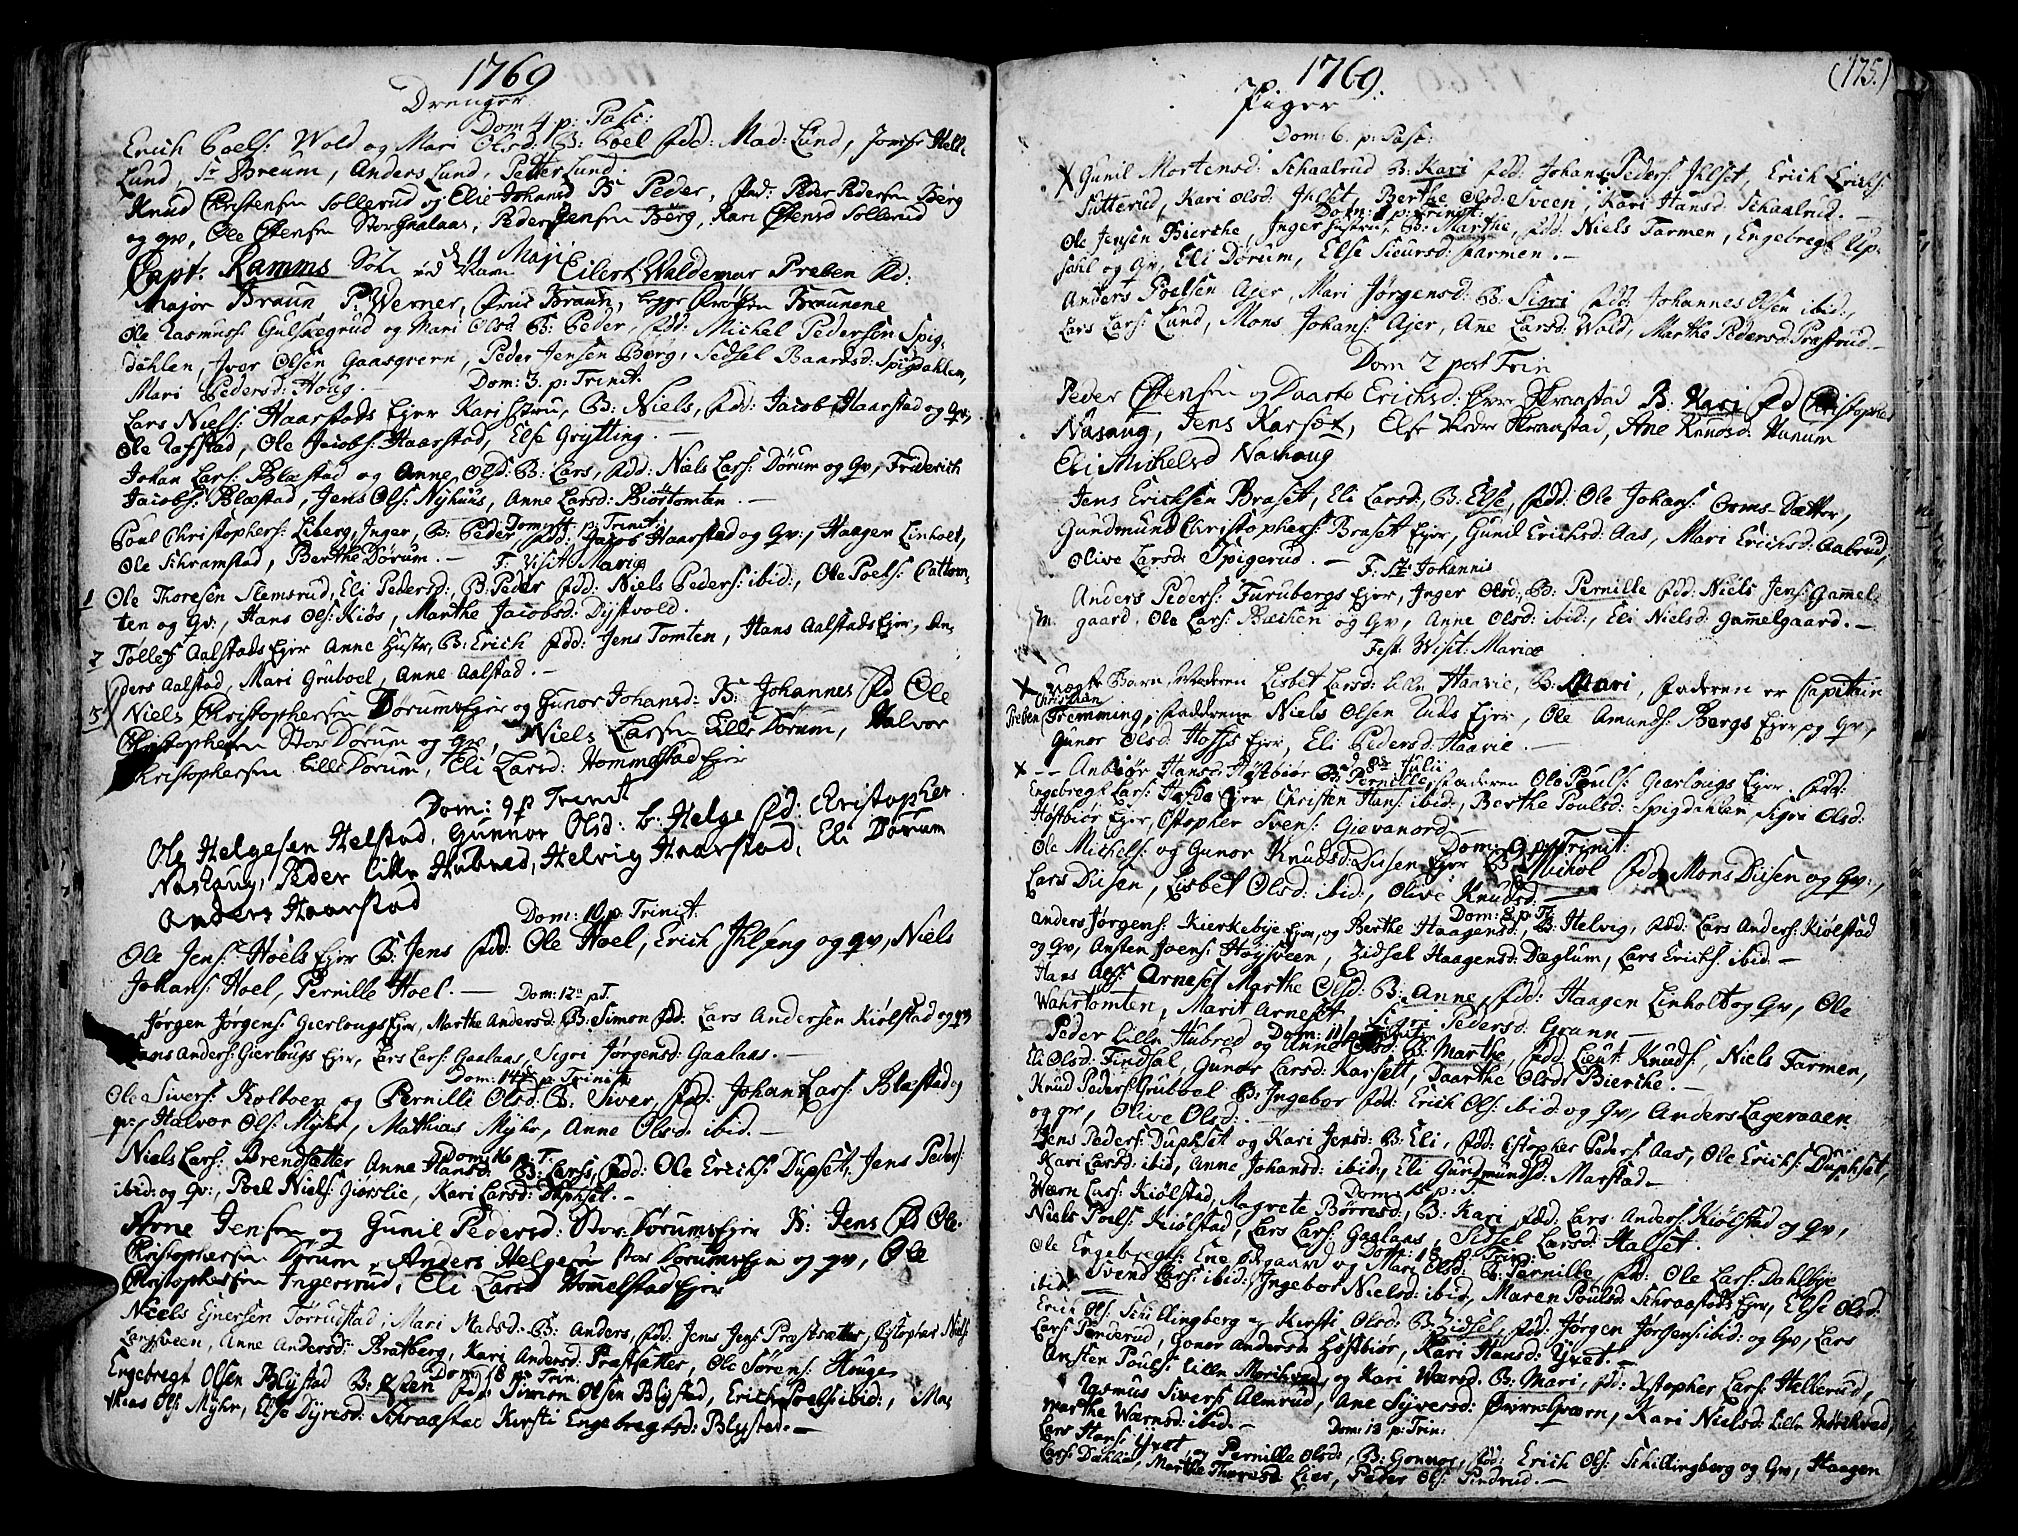 1769
Drenger
Dom 4 p: Pasc:
Erich Poels: Wold og Mari Olsd: B: Poel fdd: Mad: Lund, Jomfr Hell:
Lund, Sr Breum, Anders Lund, Petter Lund:
Knud Christensen Sollerud og Elie Johansd B Peder, fad: Peder Pedersen Berg
og qv, Ole Østensen Stor Gaalaas, Peder Jensen Berg, Kari Østensd Sollerud
d 11 Maji
Capt: Ramms Søn ved Navn Eilert Waldemar Preben fd:
Major Braun P: Werner, Frue Braun, begge Frøkn Braunene
Ole Rasmus: Gulskegrud og Mari Olsd B: Peder, fdd: Michel Pedersen Spig-
dahlen, Iver Olsen Gaasqvern, Peder Jensen Berg, Sidsel Baardsd: Spigdahlen,
Mari Pedersd: Houg.
Dom: 3. p: Trinit.
Lars Niels: Haarstads Ejer Kari Hstru, B: Niels, fdd: Jacob Haarstad og Qv,
Ole Rafstad, Ole Jacobs: Haarstad, Else Grytting. —
Johan Lars: Blæstad og Anne Olsd: B: Lars, fdd: Niels Lars: Dørum og Qv, Friderich
Jacobs: Blæstad, Jens Ols: Nyhuus, Anne Larsd: Biørtomten. —
Poul Christophers: Liberg, Inger, B: Peder fdd: Jacob Haarstad og Qv:, Haagen Linholt,
Ole Schramstad, Berthe Dørum. — F: Visit Mariæ
1 Ole Thoresen Slemsrud, Eli Pedersd:, B: Peder fdd: Niels Peders: ibid:, Ole Poels: Cattom-
ten og Qv:, Hans Ols: Kiøs, Marthe Jacobsd: Dystvold.
7 Tollef Aalstads Ejer Anne Hustr, B: Erich fdd: Jens Tomten, Hans Aalstads Ejer, An-
ders Aalstad, Mari Gruboel, Anne Aalstad. —
5 Niels Christophersen Dørums Ejer og Gunor Johansd: B: Johannes fd Ole
Christophersen Stor Dørum og qv, Niels Larsen Lille Dørum, Halvor
Christophersen Lille Dørum, Eli Larsd: Hommelstad Ejer
Dom: 9 p Trinit
Ole Helgesen Helstad, Gunnor Olsd: b: Helge fd: Christopher
Nashaug, Peder lille Hubred, Helvig Haarstad, Eli Dørum
Anders Haarstad
Dom: 10 p. Trinit:
Ole Jens: Hoels Ejer B: Jens fdd: Ole Hoel, Erich Ihlseng og qv, Niels
Johans: Hoel, Pernille Hoel. — Dom: 12te p T.
Jørgen Jørgens: Gierlougs Ejer, Marthe Andersd: B: Simon fdd: Lars Andersen Kiølstad og qv
Hans Anders: Gierlougs Ejer, Lars Lars: Gaalaas, Sigri Jørgensd: Gaalaas. —
Dom: 14de p. Trinit:
Ole Sivers: Koltoen og Pernille Olsd: B: Siver, fdd: Johan Lars: Blæstad og
qv:, Halvor Ols: Myhr, Mathias Myhr, Anne Olsd: ibid. —
Dom: 16 p. T.
Niels Lars: Brendsætter Anne Hansd: B: Lars, fdd: Ole Erichs: Dupset, Jens Peders:
ibid: og Qv:, Poel Niels: Giørslie, Kari Larsd: Duphset. —
Arne Jensen og Gunil Pedersd: Stor Dørums Ejer B: Jens fd Ole
Christophersen Dørum, Anders Helgesen stor Dørums Ejer og qv, Ole
Christophersen Ingersrud, Eli Larsd Hommelstad Ejer
Niels Ejnersen Torrustad, Mari Matsd: B: Anders, fdd: Jens Jens: Præstsætter, Cstopher Niels:
Langsveen, Anne Andersd: Bratberg, Kari Andersd: Præstsætter, Ole Sørens: Houge
Dom 18 p Trin.
Engebregt Olsen Blystad B: Østen fd: Simon Olsen Blystad, Erich Poels: ibid:, Ma-
thias Ols: Myhr, Else Dyresd: Schraastad Kirsti Engebregtsd: Blystad. —
1769.
(175.)
Piger
Dom: 6. p: Pasc:
Gunil Mortensd: Schaalrud B: Kari fdd: Johan Peders: Ihlset, Erich Erichs:
Sutterud, Kari Olsd: Ihlset, Berthe Olsd: Sveen, Kari Hansd: Schaalrud. —
Dom: 1 p: Trinit:
Ole Jensen Bierche, Inger Hustru, B: Marthe, fdd: Niels Farmen, Engebregt Up-
sahl og Qv, Eli Dørum, Else Siversd: Farmen. —
Anders Poelsen Ajer, Mari Jørgensd: B: Sigri fdd: Johannes Olsen ibid:,
Lars Lars: Lund, Mons Johans: Ajer, Ane Larsd: Wold, Marthe Pedersd: Præstrud. —
Dom 2 post Trin
Peder Østensen og Daarte Erichsd: Øvre Skraastad B: Kari fd Christopher
Nashaug, Jens Karset, Else Nedre Skraastad, Ane Knudsd: Hunum
Eli Michelsd Nashaug
Jens Erichsen Braset, Eli Larsd:, B: Else, fdd: Ole Johans: Orms Dætter,
Gundmund Christophers: Braset Ejer, Gunil Erichsd: Aas, Mari Erichsd: Aabrud,
Olive Larsd: Spigerud. — F: Sti: Johannis
Anders Peders: Furubergs Ejer, Inger Olsd:, B: Pernille fdd: Niels Jens: Gammel-
gaard, Ole Lars: Bæchen og Qv, Anne Olsd: ibid:, Eli Nielsd: Gammelgaard. —
Fest: Visit: Mariæ
uægte Barn, Moderen Lisbet Larsd: Lille Haavie, B: Mari, Faderen er Capitain
Christian
Preben Fremming, Fadderene Niels Olsen Uds Ejer, Ole Amunds: Bergs Ejer og Qv,
Gunor Olsd: Hoffs Ejer, Eli Pedersd: Haavie. —
d. 8de Julii
— Anbiør Hansd: Høstbiør B: Pernille, Faderen Ole Pouls: Gierlougs Ejer. fdd:
Engebregt Lars: Hafde Ejer Christen Hans: ibid:, Berthe Poulsd: Spigdahlen, Sigri Olsd:
Høstbiør Ejer, Cstopher Svens: Gievanord
Dom: 9 p: Trinit:
Ole Michels: og Gunor Knudsd: Diesen Ejer B: Michol fdd: Mons Diesen og Qv:,
Lars Diesen, Lisbet Olsd: ibid:, Olive Knudsd: —
Dom: 8 p: T:
Anders Jørgens: Kierkebye Ejer, og Berthe Haagensd:, B: Helvig, fdd: Lars Anders: Kiølstad
og Qv, Ansten Joens: Høysveen, Zidsel Haagensd: Dæglum, Lars Erichs: ibid. —
Hans Arneset Marthe Olsd: B: Anne, fdd: Haagen Linholt og Qv, Ole
Wahrtomten, Marit Arneset, Sigri Pedersd: Grann —
Peder Lille Hubred og Anne Olsd: B: Marthe, fdd: Lieut: Knuds:, Niels Farmen,
Eli Olsd: Findsal, Gunor Larsd: Karset, Daarthe Olsd: Bierche. —
Knud Peders: Gruboel B: Ingebor fdd: Erich Ols: ibid: og Qv, Anders Lageraaen
og qv, Olive Olsd: —
Jens Peders: Duphset og Kari Jensd: B: Eli, fdd: Cstopher Peders: Aas, Ole Erichs: Duphset,
Kari Larsd: ibid, Anne Johansd: ibid:, Eli Gundmundsd: Marstad. —
Wærn Lars: Kiølstad, Magrete Børresd:, B: Kari fdd: Lars Anders: Kiølstad og Qv,
Niels Poels: Kiølstad, Lars Lars: Gaalaas, Sidsel Larsd: Halset.
Dom: 18. p. Trin:
Ole Engebregts: Ene ødgaard og Mari Olsd: B: Pernille, fdd: Ole Lars: Dahlbye
ibid: Svend Lars: ibid:, Ingebor Nielsd: ibid, Maren Poulsd: Schraastads Ejer, Else Olsd:
Erich Ols: Schillingberg og Kirsti Olsd: B: Zidsel, fdd: Jørgen Jørgens: ibid: og Qv, Lars
Lars: Penderud, Gonor Andersd: Høstbiør, Kari Hansd: Yxet. —
Ansten Pouls: lille Mørchved og Kari Wærsd: B: Mari, fd: Xstopher Lars: Hellerud,
Rasmus Sivers: Almrud, Ane Syversd: Øvre Qværn, Kari Nielsd: Lille Mørchved,
Marthe Wærnsd: ibid. — Dom: 19 p: Trin:
Lars Hans: Yxet og Pernille Olsd:, B: Gonnor, fdd: Erich Ols: Schillingberg og Qv, Haagen
Lars: Dæhlie, Marthe Thoresd: Lier, Peder Ols: Pindrud. —